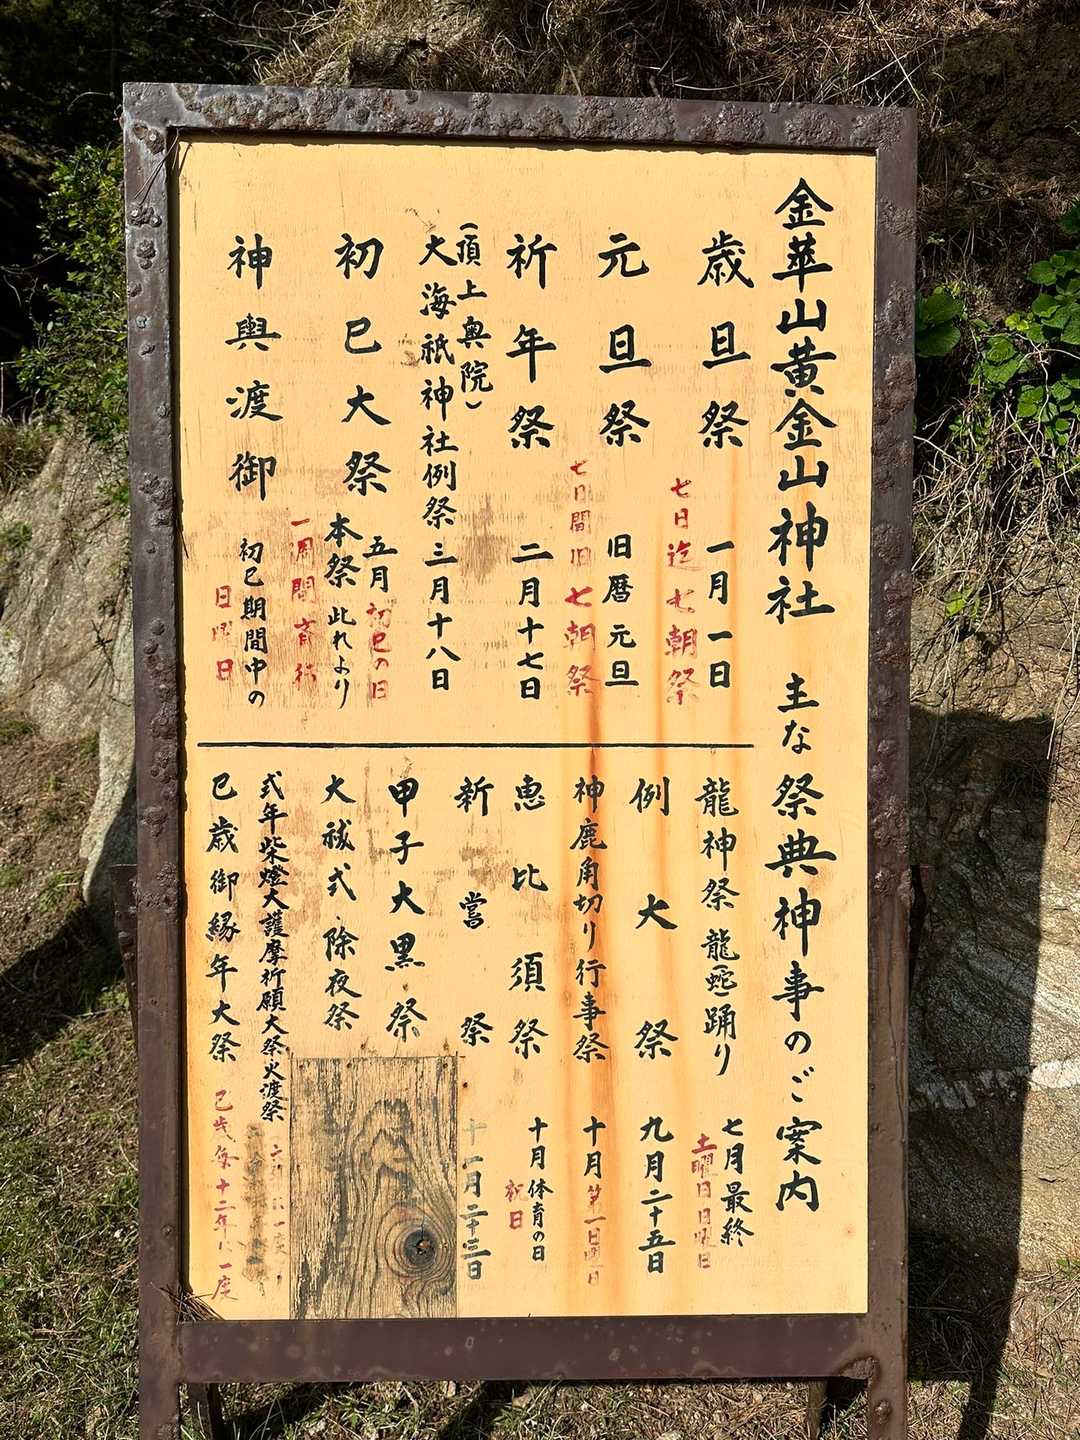 金華山黄金山神社 主な祭典神事のご案内
歳旦祭 一月一日
七日迄 七朝祭
元旦祭 旧暦元旦
七日間旧七朝祭
祈年祭 二月十七日
(頂上奥院)
大海祇神社例祭 三月十八日
初巳大祭 五月初巳の日
本祭此れより
一週間斎行
神輿渡御 初巳期間中の
日曜日
龍神祭 龍(蛇)踊り 七月最終
土曜日日曜日
例大祭 九月二十五日
神鹿角切り行事祭 十月第一日曜日
恵比須祭 十月体育の日
祝日
新嘗祭 十一月二十三日
甲子大黒祭
大祓式・除夜祭
弐年柴燈大護摩祈願大祭・火渡祭
一度
巳歳御縁年大祭 巳歳毎十二年に一度